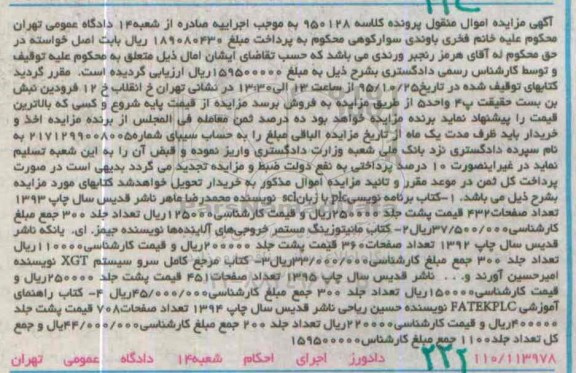 آگهی مزایده اموال منقول پرونده کلاسه ۹۵۰۱۲۸ به موجب اجراییه صادره از شعبه۱۴ دادگاه عمومی تهران
محکوم علیه خانم فخری باوندی سوارکوهی محکوم به پرداخت مبلغ ۱۸۹۰۸۰۴۳۰ ریال بابت اصل خواسته در
حق محکوم له آقای هرمز رنجبر ورندی می باشد که حسب تقاضای ایشان امال ذیل متعلق به محکوم علیه توقیف
و توسط کارشناس رسمی دادگستری بشرح ذیل به مبلغ ۱۵۹۵۰۰۰۰۰ریال ارزیابی گردیده است. مقرر گردید
کتابهای توقیف شده در تاریخ۹۵/۱۰/۲۵از ساعت ۱۳ الی۱۳:۳۰در نشانی تهران خ انقلاب خ ۱۲ فرودین نبش
بن بست حقیقت پ۴ واحد۵ از طریق مزایده به فروش برسد مزایده از قیمت پایه شروع و کسی که بالاترین
قیمت را پیشنهاد نماید برنده مزایده خواهد بود ده درصد ثمن معامله فی المجلس از برنده مزایده اخذ و
خریدار باید ظرف مدت یک ماه از تاریخ مزایده الباقی مبلغ را به حساب سیبای شماره۲۱۷۱۲۹۹۰۰۸۰۰۵ به
نام سپرده دادگستری نزد بانک ملی شعبه وزارت دادگستری واریز نموده و قبض آن را به این شعبه تسلیم
نماید در غیراینصورت ۱۰ درصد پرداختی به نفع دولت ضبط و مزایده تجدید می گردد بدیهی است در صورت
پرداخت کل ثمن در موعد مقرر و تائید مزایده اموال مذکور به خریدار تحویل خواهدشد کتابهای مورد مزایده
بشرح ذیل می باشد. ۱-کتاب برنامه نویسیplc با زبانscl نویسنده محمدرضا ماهر ناشر قدیس سال چاپ ۱۳۹۳
تعداد صفحات۴۳۲ قیمت پشت جلد ۲۵۰۰۰۰ریال و قیمت کارشناسی۱۲۵۰۰۰ریال تعداد جلد ۳۰۰ جمع مبلغ
کارشناسی۳۷/۵۰۰/۰۰۰ریال۲- کتاب مانیتورینگ مستمر خروجی‌های آلاینده‌ها نویسنده جیمز. ای. یانکه ناشر
قدیس سال چاپ ۱۳۹۲ تعداد صفحات۳۶۰ قیمت پشت جلد ۲۰۰۰۰۰ریال و قیمت کارشناسی۱۱۰۰۰۰ریال
تعداد جلد ۳۰۰ جمع مبلغ کارشناسی۳۳/۰۰۰/۰۰۰ریال۳- کتاب مرجع کامل سرو سیستم XGT نویسنده
امیرحسین آورند و... ناشر قدیس سال چاپ ۱۳۹۵ تعداد صفحات۴۵۱ قیمت پشت جلد ۲۵۰۰۰۰ریال و
قیمت کارشناسی۱۵۰۰۰۰ریال تعداد جلد ۳۰۰ جمع مبلغ کارشناسی۴۵/۰۰۰/۰۰۰ریال ۴- کتاب راهنمای
آموزشی FATEKPLC نویسنده حسین ریاحی ناشر قدیس سال چاپ ۱۳۹۴ تعداد صفحات۷۰۸ قیمت پشت جلد
۴۰۰۰۰۰ریال و قیمت کارشناسی۲۲۰۰۰۰ریال تعداد جلد ۲۰۰ جمع مبلغ کارشناسی۴۴/۰۰۰/۰۰۰ریال و جمع
کل تعداد جلد۱۱۰۰ جمع مبلغ کارشناس۱۵۹۵۰۰۰۰۰
۱۱۰/۱۱۳۹۷۸ دادورز اجرای احکام شعبه۱۴ دادگاه عمومی تهران